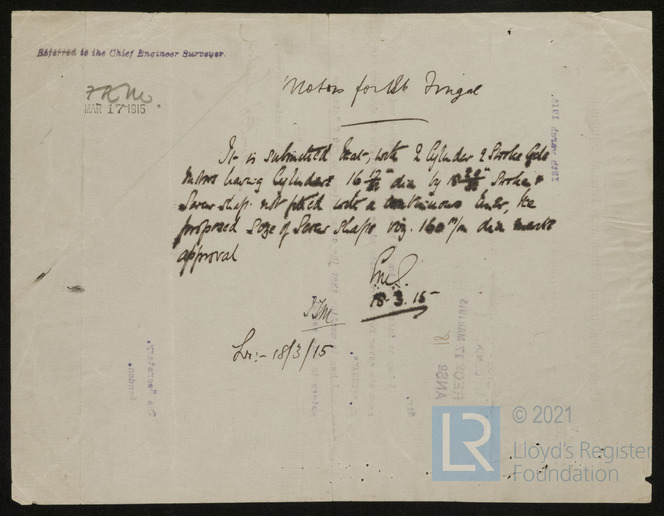 Referred to the Chief Engineer Surveyor.
MAR 17 1915
Motors for Fingal
It is submitted that, with 2 Cylinder 2 Stroke Cycle
Motors having Cylinders 16 " dia by " Stroke, &
Screw shaft not fitted with a continuous liner, the
proposed size of Screw Shaft viz. 160 m/m dia merits
approval
18.3.15
Lr:- 18/3/15
© 2021
LR
Lloyd's Register
Foundation